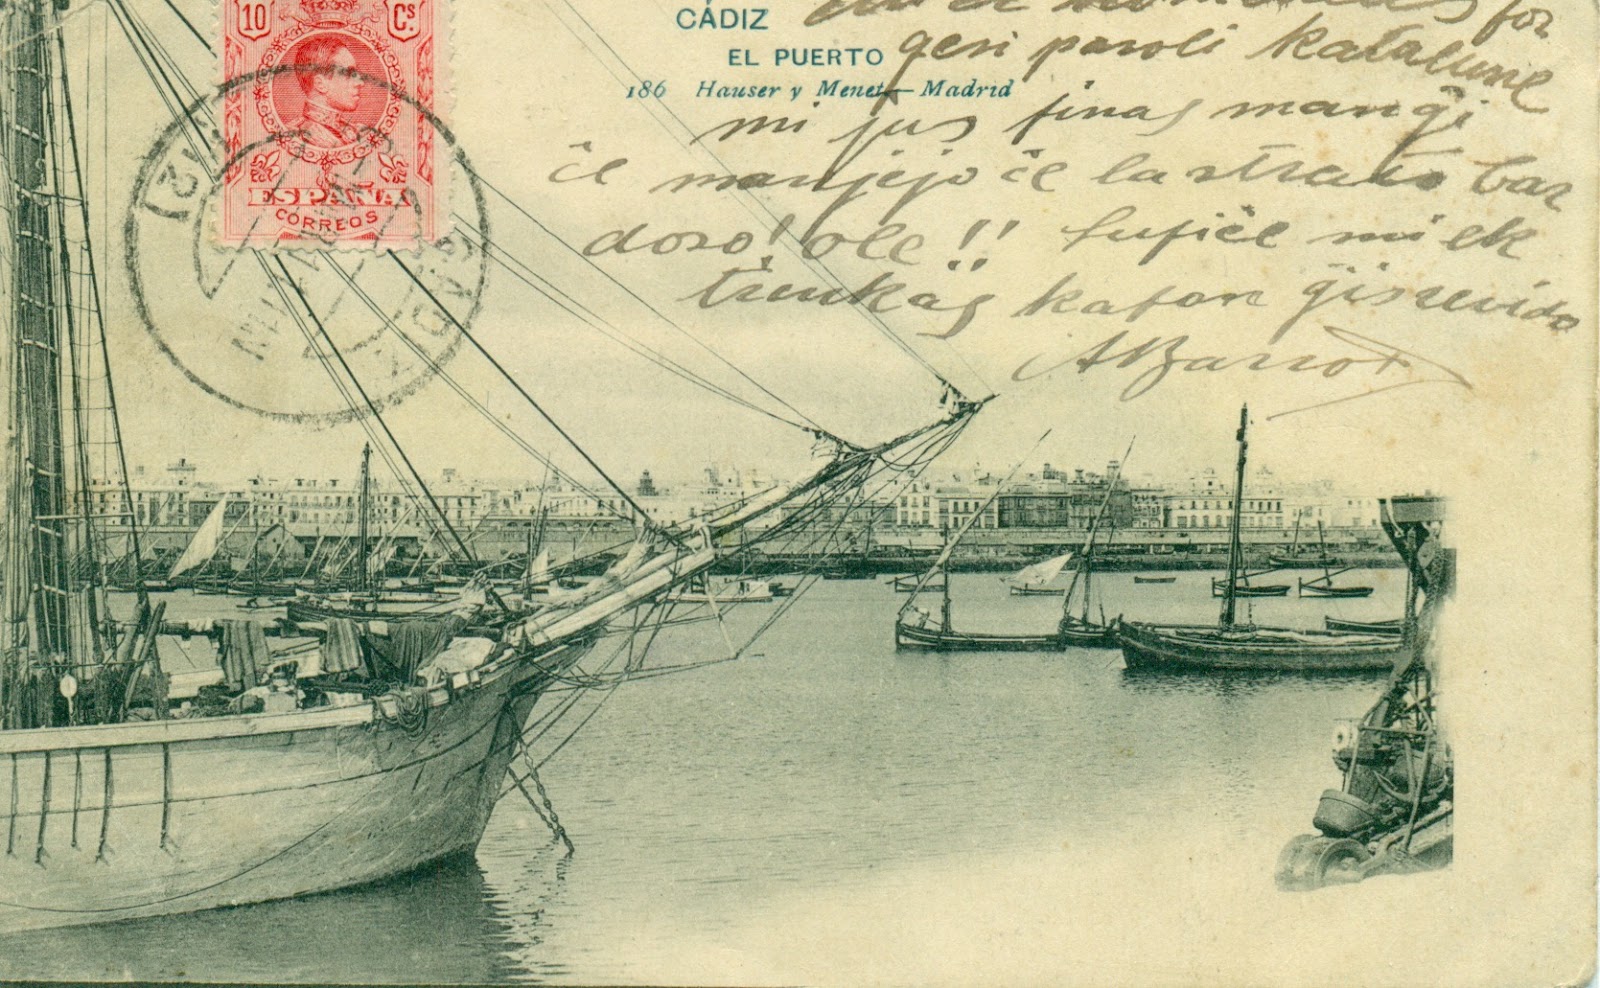 10 Cs
ESPAÑA
CORREOS
CÁDIZ
EL PUERTO
186 Hauser y Menet.—Madrid
for
gesi paroli katalune
mi ĵus finas manĝi
ĉe manjejo ĉe la strato Bar
doso! ole!! sufiĉe mi ek
trinkas kafon ĝisrevido